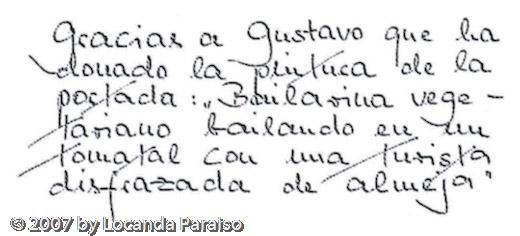 Gracias a Gustavo que ha
donado la pintura de la
portada: „Bailarina vege-
tariano bailando en un
tomatal con una turista
disfrazada de almeja"
© 2007 by Locanda Paraiso